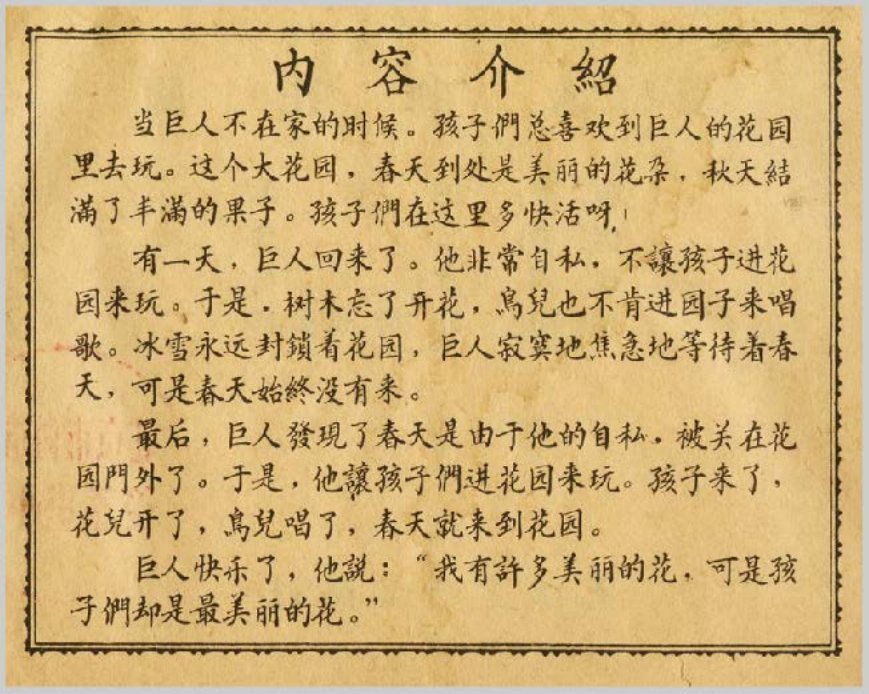 内容介紹
当巨人不在家的时候。孩子們总喜欢到巨人的花园
里去玩。这个大花园，春天到处是美丽的花朵，秋天結
滿了丰滿的果子。孩子們在这里多快活呀！
有一天，巨人回来了。他非常自私，不讓孩子进花
园来玩。于是，树木忘了开花，鳥兒也不肯进园子来唱
歌。冰雪永远封鎖着花园，巨人寂寞地焦急地等待着春
天，可是春天始終没有来。
最后，巨人發現了春天是由于他的自私，被关在花
园門外了。于是，他讓孩子們进花园来玩。孩子来了，
花兒开了，鳥兒唱了，春天就来到花园。
巨人快乐了，他説：“我有許多美丽的花，可是孩
子們却是最美丽的花。”